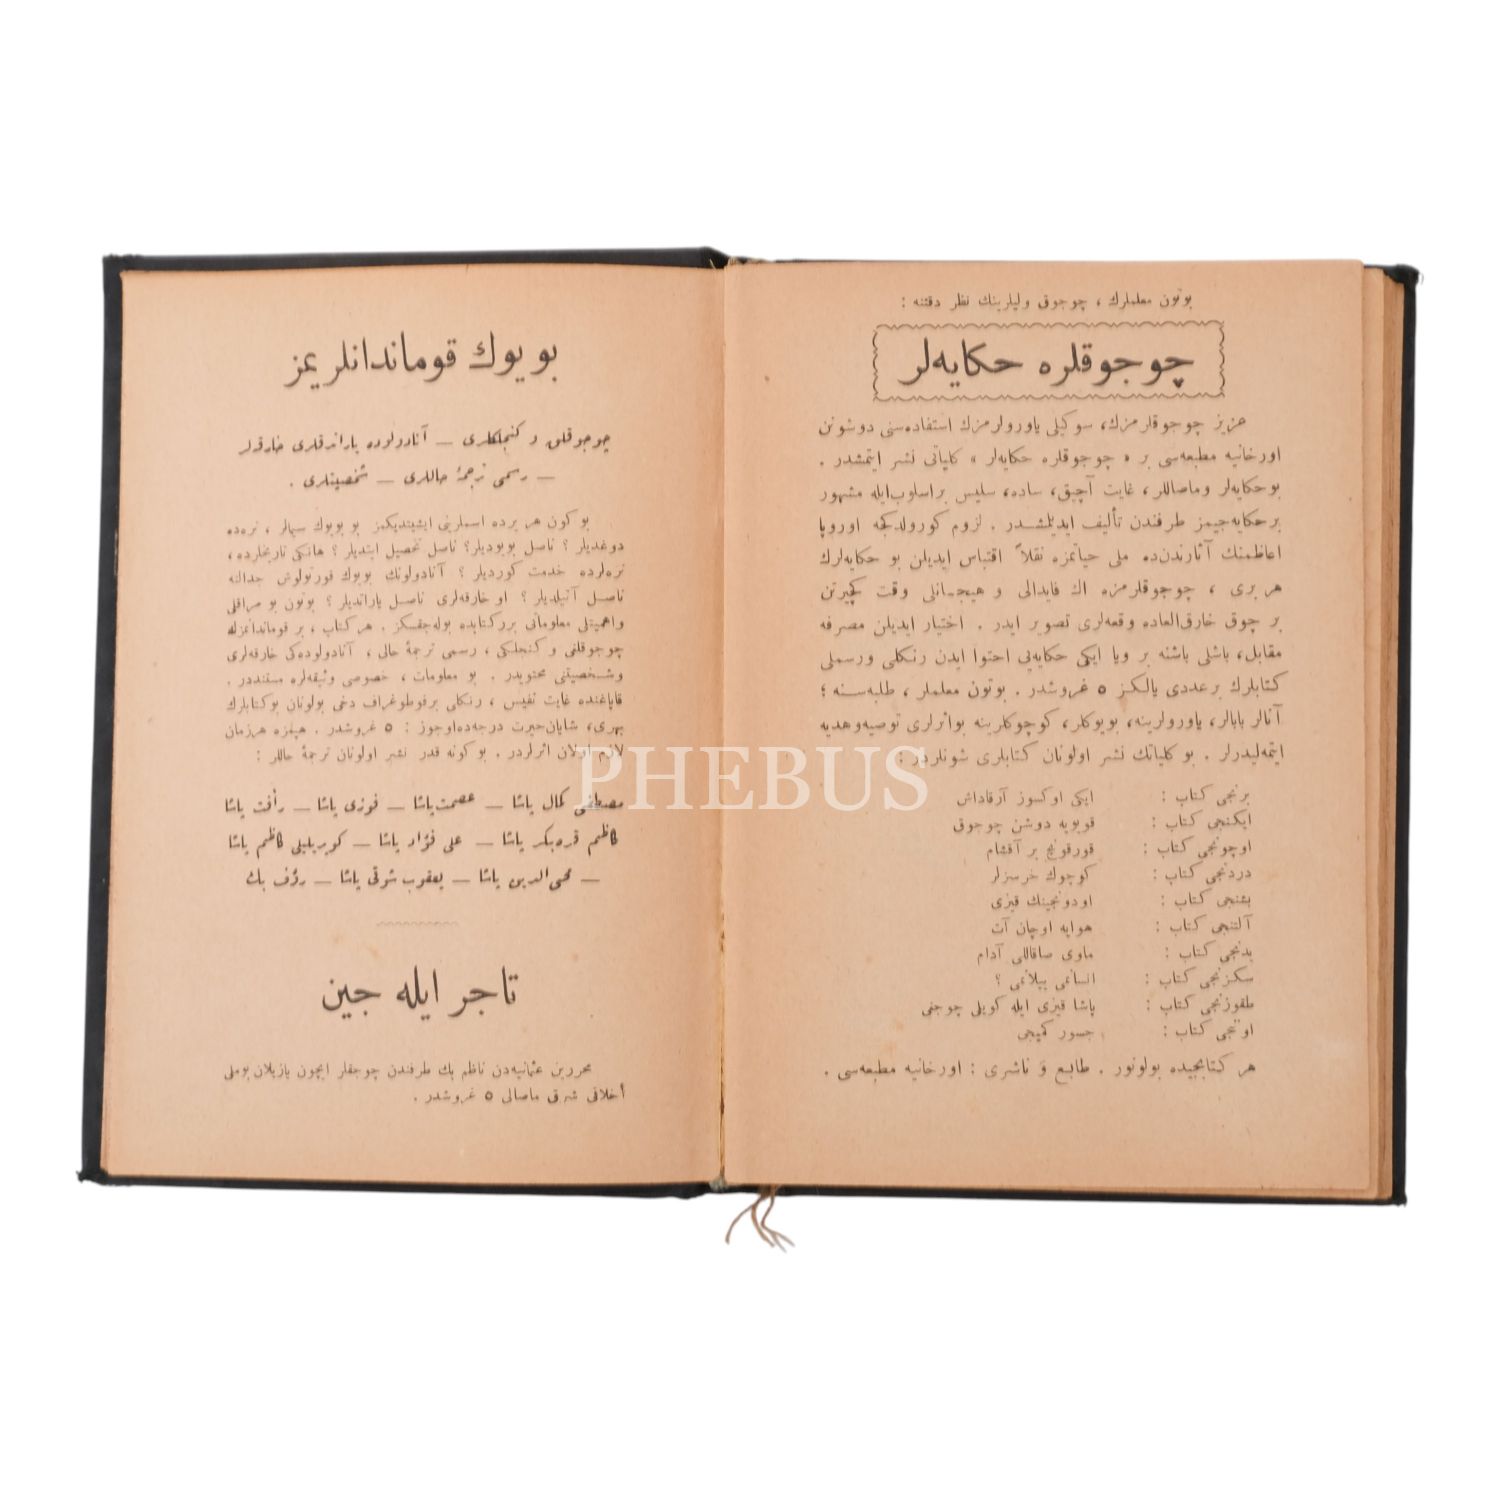 بوتون معلملرك ، چوجوق وليلرينك نظر دقتنه :
چوجوقلره حكايه‌لر
عزيز چوجوقلرمزك، سوكيلى ياورولرمزك استفاده‌سنى دوشونن
اورخانيه مطبعه‌سى بر « چوجوقلره حكايه‌لر » كلياتى نشر ايتمشدر .
بوحكايه‌لر وماصاللر، غايت آچيق، ساده، سليس براسلوب‌ايله مشهور
برحكايه‌جيمز طرفندن تأليف ايديلمشدر . لزوم كورولدكجه اوروپا
اعاظمنك آثارندن‌ده ملى حياتمزه نقلاً اقتباس ايديلن بو حكايه‌لرك
هر برى ، چوجوقلرمزه اك فايدالى و هيجانلى وقت كچيرتن
بر چوق خارق‌العاده وقعه‌لرى تصوير ايدر . اختيار ايديلن مصرفه
مقابل، باشلى باشنه بر ويا ايكى حكايه‌يى احتوا ايدن رنكلى ورسملى
كتابلرك برعددى يالكز ٥ غروشدر . بوتون معلملر ، طلبه‌سنه ؛
آنالر بابالر، ياورولرينه، بويوكلر، كوچوكلرينه بواثرلرى توصيه‌وهديه
ايتمه‌ليدرلر . بو كلياتك نشر اولونان كتابلرى شونلردر :
برنجى كتاب : ايكى اوكسوز آرقاداش
ايكنجى كتاب : قويويه دوشن چوجوق
اوچونجى كتاب : قورقونج بر آقشام
دردنجى كتاب : كوچوك خرسزلر
بشنجى كتاب : اودونجينك قيزى
آلتنجى كتاب : هوايه اوچان آت
يدنجى كتاب : ماوى صاقاللى آدام
سكزنجى كتاب : انسانمى ييلانمى ؟
طقوزنجى كتاب : پاشا قيزى ايله كويلى چوجغى
اوننجى كتاب : جسور كميجى
هر كتابجيده بولونور . طابع و ناشرى : اورخانيه مطبعه‌سى .
بويوك قومانداнلريمز
چوجوقلق و كنجلكلرى — آنادولوده ياراتدقلرى خارقه‌لر
— رسمى ترجمۀ حاللرى — شخصيتلرى .
بو كون هر يرده اسملرينى ايشيتديكمز بو بويوك سيمالر ، نره‌ده
دوغديلر ؟ ناصل بويوديلر؟ ناصل تحصيل ايتديلر ؟ هانكى تاريخلرده،
نره‌لرده خدمت كورديلر ؟ آنادولونك بويوك قورتولوش جدالنه
ناصل آتيلديلر ؟ او خارقه‌لرى ناصل ياراتديلر ؟ بوتون بو مراقلى
واهميتلى معلوماتى بررکتابده بوله‌جقسكز . هركتاب ، بر قوماندانمزك
چوجوقلغى و كنجلكى ، رسمى ترجمۀ حالى ، آنادولوده‌كى خارقه‌لرى
وشخصيتنى محتويدر . بو معلومات ، خصوصى وثيقه‌لره مستنددر .
قاپاغنده غايت نفيس ، رنكلى برفوطوغراف دخى بولونان بوكتابلرك
بهرى، شايان‌حيرت درجه‌ده‌اوجوز : ٥ غروشدر . هپمزه هرزمان
لازم اولان اثرلردر . بو كونه قدر نشر اولونان ترجمۀ حاللر :
مصطفى كمال پاشا — عصمت‌پاشا — فوزى پاشا — رأفت پاشا
كاظم قره‌بكر پاشا — على فؤاد پاشا — كوپريليلى كاظم پاشا
— محى‌الدين پاشا — يعقوب شوقى پاشا — رؤف بك
تاجر ايله جين
محررين عثمانيه‌دن ناظم بك طرفندن چوجقلر ايچون يازيلان‌بوملى
أخلاقى شرق ماصالى ٥ غروشدر .
PHEBUS